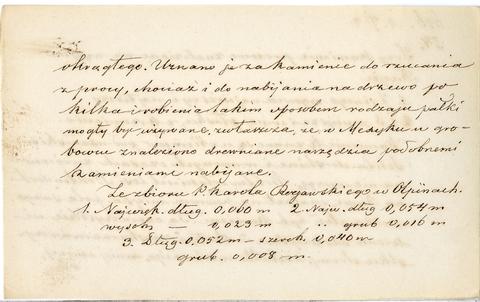 okrągłego. Uznano je za kamienie do rzucania
z procy, chociaż i do nabijania na drzewo po
kilka i robienia takim sposobem rodzaju pałki
mogły być używane, zwłaszcza, że w Meksyku w gro-
bowcu znaleziono drewniane narzędzia podobnemi
kamieniami nabijane.
Ze zbioru P. Karola Rogawskiego w Ołpinach.
1. Najwięk. dług. 0,060 m 2 Najw. dług 0,054 m
wysok — 0,023 m „ grub 0,016 m
3. Dług. 0,052 m – szerok. 0,040 m
grub. 0,008 m.